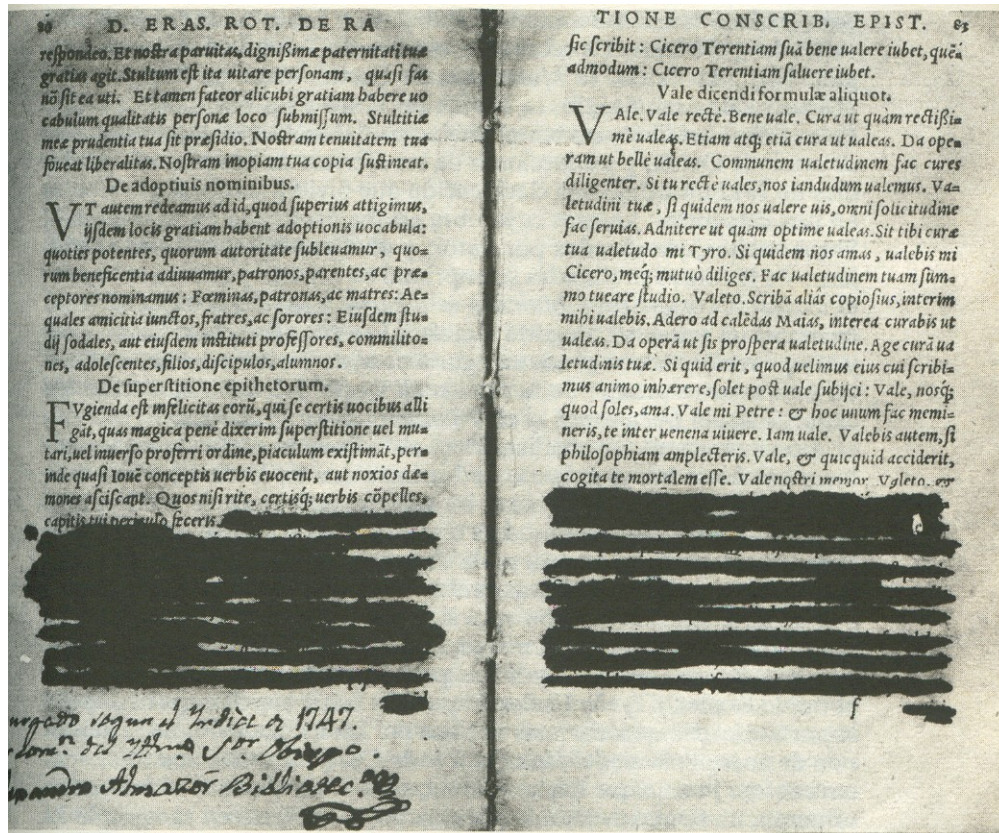 D. ERAS. ROT. DE RA
respondeo. Et nostra paruitas, dignißimæ paternitati tuæ
gratias agit. Stultum est ita uitare personam, quasi fas
nõ sit ea uti. Et tamen fateor alicubi gratiam habere uo
cabulum qualitatis personæ loco submissum. Stultitiæ
meæ prudentia tua sit præsidio. Nostram tenuitatem tua
foueat liberalitas. Nostram inopiam tua copia sustineat.
De adoptiuis nominibus.
VT autem redeamus ad id, quod superius attigimus,
ijsdem locis gratiam habent adoptionis uocabula:
quoties potentes, quorum autoritate subleuamur, quo-
rum beneficentia adiuuamur, patronos, parentes, ac præ-
ceptores nominamus: Fœminas, patronas, ac matres: Ae-
quales amicitia iunctos, fratres, ac sorores: Eiusdem stu-
dij sodales, aut eiusdem instituti professores, commilito-
nes, adolescentes, filios, discipulos, alumnos.
De superstitione epithetorum.
FVgienda est infelicitas eorũ, qui se certis uocibus alli
gãt, quas magica penè dixerim superstitione uel mu-
tari, uel inuerso proferri ordine, piaculum existimãt, per-
inde quasi Iouẽ conceptis uerbis euocent, aut noxios dæ-
mones asciscant. Quos nisi rite, certisq; uerbis cõpelles,
capitis tui periculo feceris.
segun el Indice de 1747.
del Sor. Obispo.
Almazor Bibliotec.
TIONE CONSCRIB. EPIST. 83
sic scribit: Cicero Terentiam suã bene ualere iubet, quẽ-
admodum: Cicero Terentiam saluere iubet.
Vale dicendi formulæ aliquot.
VAle. Vale rectè. Bene uale. Cura ut quàm rectißi-
mè ualeas. Etiam atq; etiã cura ut ualeas. Da ope-
ram ut bellè ualeas. Communem ualetudinem fac cures
diligenter. Si tu rectè uales, nos iandudum ualemus. Va-
letudini tuæ, si quidem nos ualere uis, omni solicitudine
fac seruias. Adnitere ut quàm optime ualeas. Sit tibi curæ
tua ualetudo mi Tyro. Si quidem nos amas, ualebis mi
Cicero, meq; mutuò diliges. Fac ualetudinem tuam sum-
mo tueare studio. Valeto. Scribã aliàs copiosius, interim
mihi ualebis. Adero ad calẽdas Maias, interea curabis ut
ualeas. Da operã ut sis prospera ualetudine. Age curã ua
letudinis tuæ. Si quid erit, quod uelimus eius cui scribi-
mus animo inhærere, solet post uale subijci: Vale, nosq;
quod soles, ama. Vale mi Petre: & hoc unum fac memi-
neris, te inter uenena uiuere. Iam uale. Valebis autem, si
philosophiam amplecteris. Vale, & quicquid acciderit,
cogita te mortalem esse. Vale nostri memor. Valeto, &
f